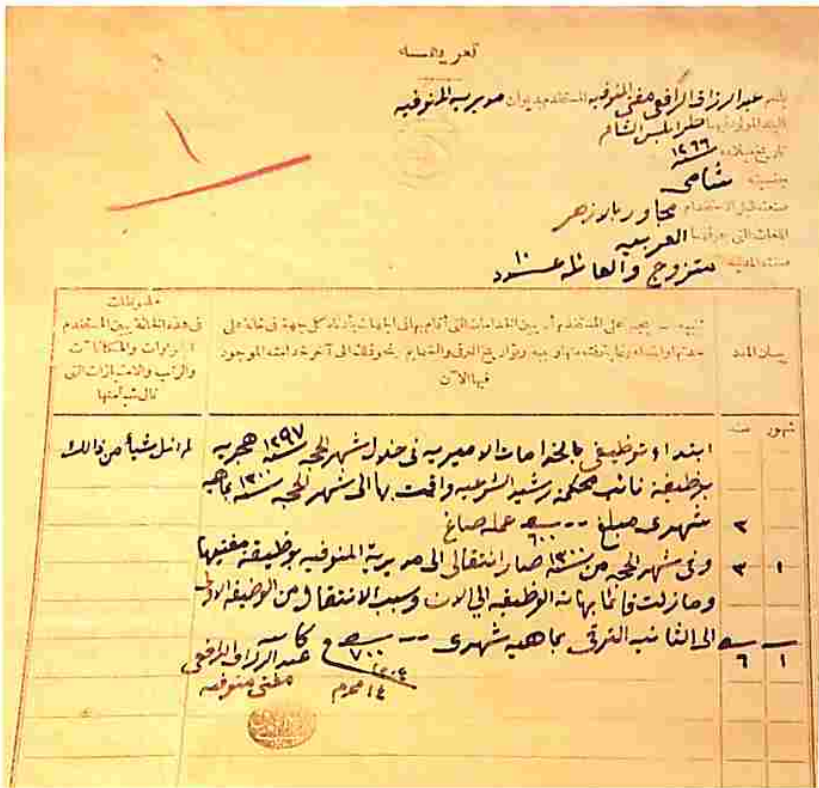 تعريفه
١
باسم عبد الرزاق الرافعى مفتى المنوفيه المستخدم بديوان مديرية المنوفيه
البلد المولود فيها طرابلس الشام
تاريخ ميلاده سنة ١٢٦٦
جنسيته شامى
صنعته قبل الاستخدام مجاور بالازهر
اللغات التى يعرفها العربيه
متزوج والعائله عدد ١٠
بيان المدد
شهور سنه
تنبيه يجب على المستخدم أن يبين الخدامات التى أقام بها فى
كل جهة فى خانة على
حدتها وابتداء
وتواريخ الترقى
الى آخر خدامته الموجود
فيها الآن
ملحوظات
فى هذه الخانة يبين المستخدم
والمكافآت
والرتب والامتيازات التى
نال شيأ منها
ابتداء توظيفى بالخدامات الاميريه فى خلال شهر الحجه سنة ١٢٩٧ هجريه
لم انل شيأ من ذالك
بوظيفة نائب محكمة رشيد الشرعيه واقمت بها الى شهر الحجه سنة ١٣٠٠ بماهيه
٣ شهرى مبلغ ٦٠٠ عمله صاغ
١ ٣ وفى شهر الحجه من سنة ١٣٠٠ صار انتقالى الى مديرية المنوفيه بوظيفة مفتيها
وما زلت قائما بهاته الوظيفه الى الان وسبب الانتقال من الوظيفه الاولى
١ ٦ الى الثانيه الترقى بماهيه شهرى ٧٠٠
١٤ محرم ١٣٠٤
كاتبه
عبد الرزاق الرافعى
مفتى منوفيه